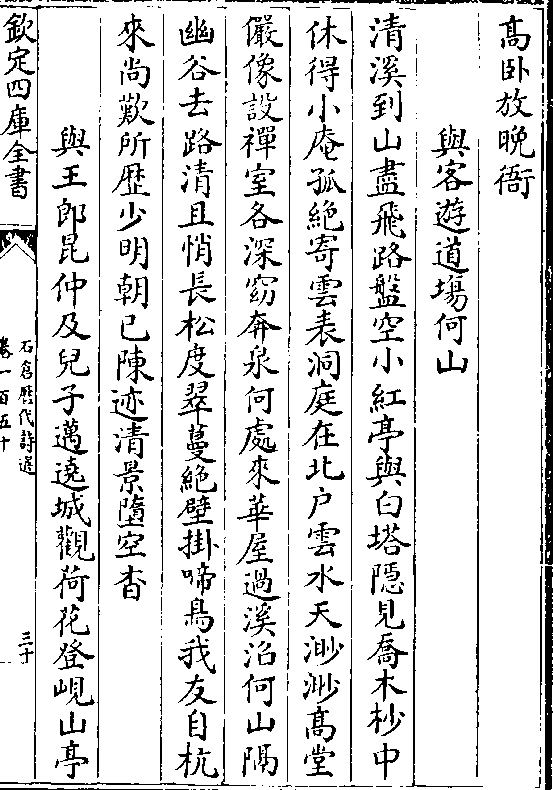 高卧放晩衙
與客遊道塲何山
清溪到山盡飛路盤空小紅亭與白塔隠見喬木杪中
休得小庵孤絶寄雲表洞庭在北户雲水天渺渺髙堂
儼像設禪室各深窈奔泉何處來華屋過溪沼何山隔
幽谷去路清且悄長松度翠蔓絶壁掛啼鳥我友自杭
來尚歎所歴少明朝已陳迹清景墮空杳
與王郎昆仲及兒子邁遶城觀荷花登峴山亭
欽定四庫全書
石倉歴代詩選
卷一百五十
三十